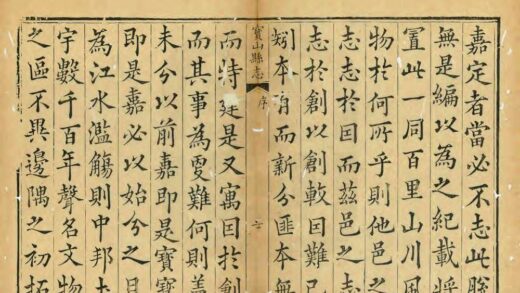 嘉定者當必不志此勝
無是編以為之紀載將
置此一同百里山川風
物於何所乎則他邑之
志於因而茲邑之志
志於創以創較因難已
矧本有而新分匪本無
寶山縣志
序
七
而特建是又寓因於創
而其事為更難何則蓋
未分以前嘉即是寶寶
即是嘉必以始分之日
為江水濫觴則中邦土
宇數千百年聲名文物
之區不異邊隅之初拓